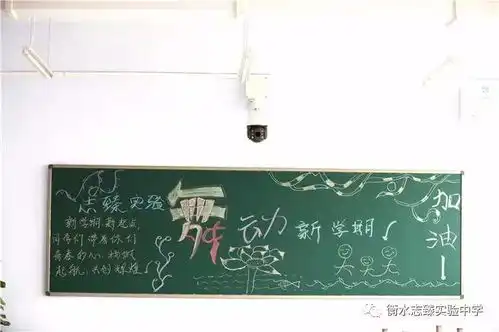 志臻实验
舞动新学期
加油!
新学期新起点
同学们带着你们
青春的心,扬帆
起航,共创辉煌
衡水志臻实验中学